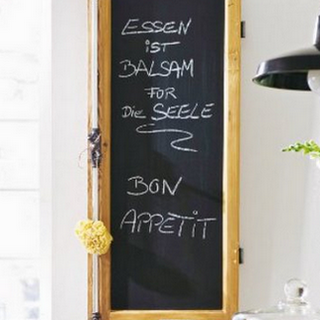 ESSEN
iST
BALSAM
FÜR
Die SEELE
BON
APPETIT